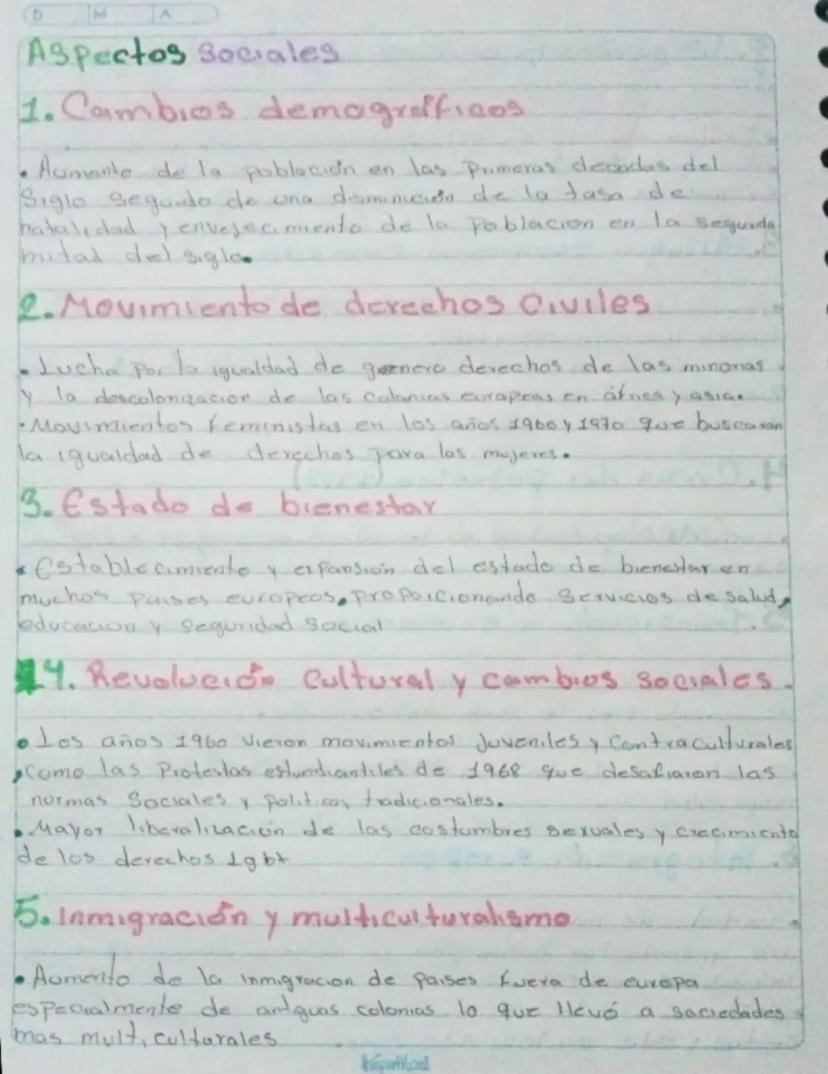 D M A
Aspectos sociales
1. Cambios demografficos
• Aumento de la poblacion en las primeras decadas del
siglo seguido de una disminución de la tasa de
natalidad y envejecimiento de la poblacion en la segunda
mitad del siglo.
2. Movimiento de derechos civiles
• Lucha por la igualdad de genero derechos de las minorias
y la descolonizacion de las colonias europeas en áfrica y asia.
• Movimientos feministas en los años 1960 y 1970 que buscaron
la igualdad de derechos para las mujeres.
3. Estado de bienestar
• Establecimiento y expansión del estado de bienestar en
muchos paises europeos, proporcionando servicios de salud,
educacion y seguridad social
4. Revolución cultural y cambios sociales.
• Los años 1960 vieron movimientos juveniles y contraculturales
, como las protestas estundiantiles de 1968 que desafiaron las
normas sociales y politicas tradicionales.
• Mayor liberalización de las costumbres sexuales y crecimiento
de los derechos lgbt
5. Inmigración y multiculturalismo
• Aumento de la inmigracion de paises fuera de europa
especialmente de antiguas colonias lo que llevó a sociedades
mas multiculturales